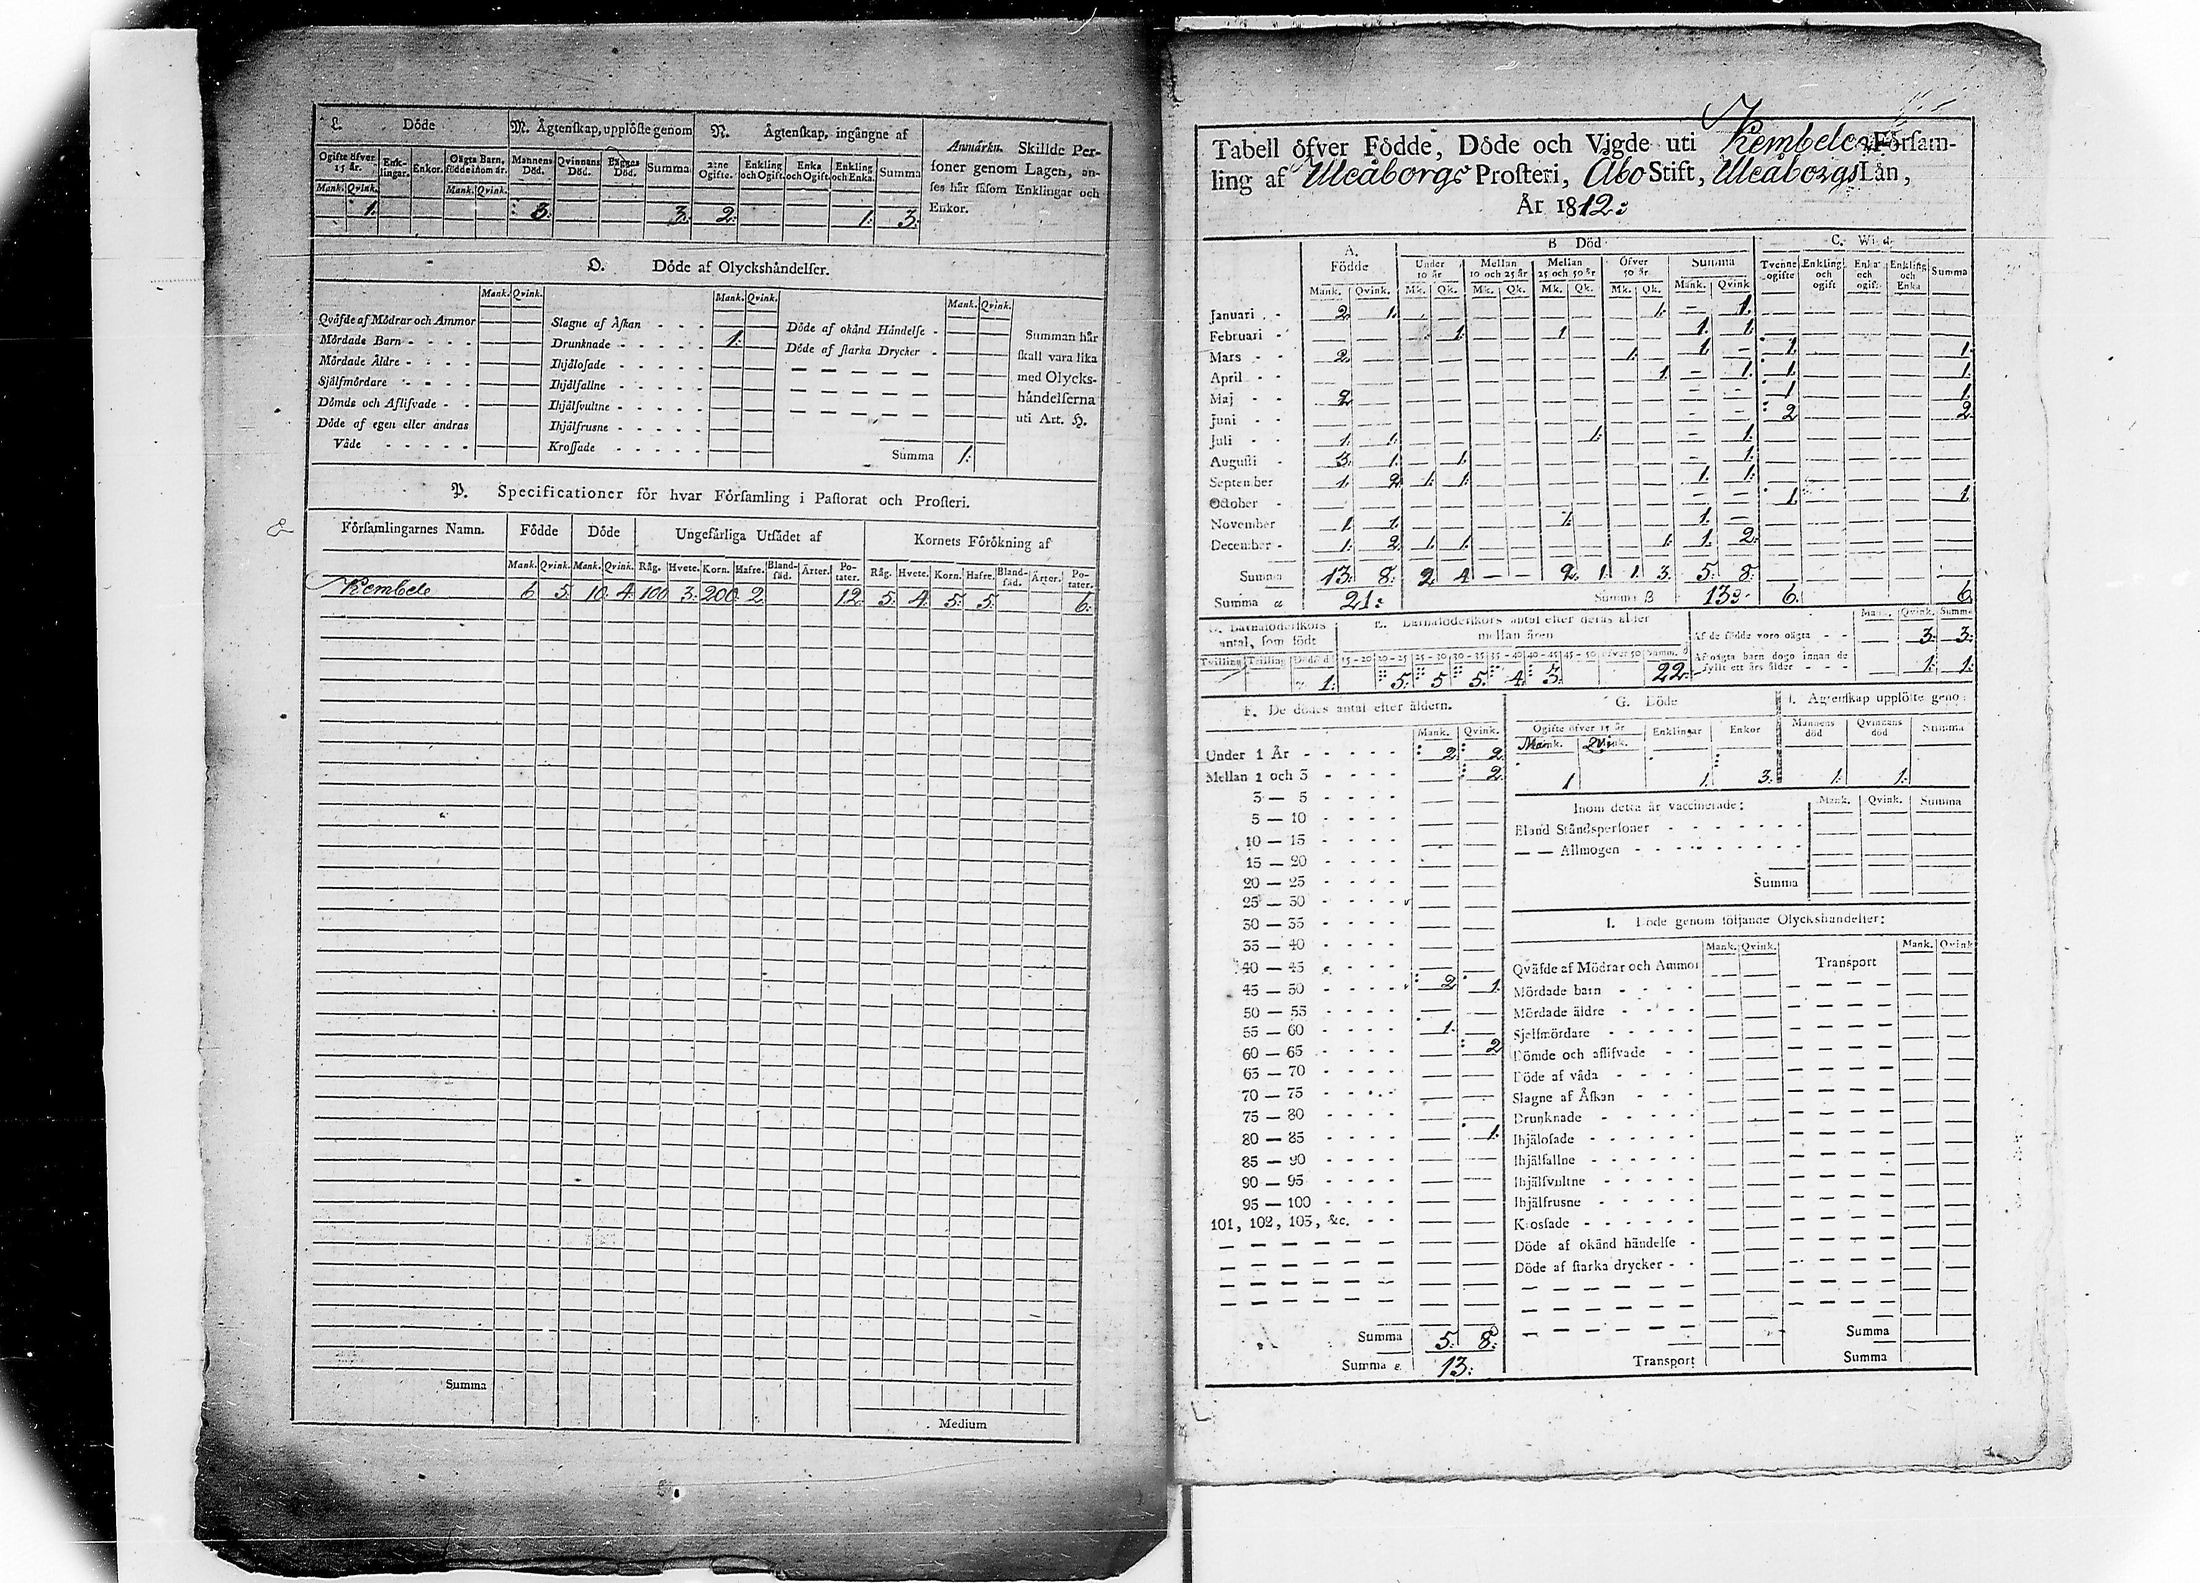 L. Döde
M. Ägtenskap, upplöste genom
N. Ägtenskap, ingångne af
Anmärkn. Skillde Personer
soner genom Lagen, an-
ses här såsom Enklingar och
Enkor.
Ogifte öfver 15 år. Enklingar. Enkor. Oägta Barn, födde inom år. Mannens Död. Qvinnans Död. Bägges Död. Summa 2:ne Ogifte. Enkling och Ogift. Enka och Ogift. Enkling och Enka. Summa
Mank. Qvink. Mank. Qvink.
1. 3. 3. 2. 1. 3.
O. Döde af Olyckshändelser.
Mank. Qvink. Mank. Qvink. Mank. Qvink.
Qväfde af Mödrar och Ammor
Mördade Barn - - - -
Mördade Äldre - - - -
Själfmördare - - - -
Dömde och Aflifvade - -
Döde af egen eller andras
Våde - - - - -
Slagne af Åskan - - -
Drunknade - - - - - 1.
Ihjälosade - - - - -
Ihjälfallne - - - - -
Ihjälfvultne - - - - -
Ihjälfrusne - - - - -
Krossade - - - - -
Döde af okänd Händelse -
Döde af starka Drycker -
Summa 1.
Summan här
skall vara lika
med Olycks-
händelserna
uti Art. H.
P. Specificationer för hvar Församling i Pastorat och Prosteri.
Församlingarnes Namn. Födde Döde Ungefärliga Utsädet af Kornets Förökning af
Mank. Qvink. Mank. Qvink. Råg. Hvete. Korn. Hafre. Bland-säd. Ärter. Po-tater. Råg. Hvete. Korn. Hafre. Bland-säd. Ärter. Po-tater.
Kembele 6 5. 10. 4. 100 3. 200. 2. 12. 5. 4. 5. 5. 6.
Summa
Medium
Tabell öfver Födde, Döde och Vigde uti Kembele Församling
ling af Uleåborgs Prosteri, Åbo Stift, Uleåborgs Län,
År 1812.
A. Födde B Död C. Wigde
Under 10 år Mellan 10 och 25 år Mellan 25 och 50 år Öfver 50 år Summa Tvenne ogifte Enkling och ogift Enka och ogift Enkling och Enka Summa
Mank. Qvink. Mk. Qk. Mk. Qk. Mk. Qk. Mk. Qk. Mank. Qvink
Januari - 2. 1. 1. 1.
Februari - 1. 1 1. 1.
Mars - - 2. 1. 1. - 1. 1.
April - - 1. - 1. 1. 1.
Maj - - 2. - - 1 1.
Juni - - - - 2. 2.
Juli - - 1. 1. 1. - 1.
Augusti - 3. 1. 1. - 1.
September 1. 2. 1. 1. 1. 1.
October - - - 1. 1.
November 1. 1. 1. 1. -
December - 1. 2. 1. 1. 1. 1. 2.
Summa 13. 8. 2. 4 - - 2. 1. 1. 3. 5. 8.
Summa a 21. Summa B 13. 6. 6.
D. Barnaföderskors antal, som födt
E. Barnaföderskors antal efter deras ålder mellan åren
Mank. Qvink. Summa
Af de födde voro oägta - - 3. 3.
Af oägta barn dogo innan de
fyllt ett års ålder - - - 1. 1.
Tvilling Trilling Dödfödd 15-20 20-25 25-30 30-35 35-40 40-45 45-50 öfver 50 Summa d
1. 5. 5 5. 4. 3. 22.
F. De dödes antal efter åldern.
Mank. Qvink.
Under 1 År - - - - - 2. 2
Mellan 1 och 3 - - - - 2.
3 — 5 - - - -
5 — 10 - - - -
10 — 15 - - - -
15 — 20 - - - -
20 — 25 - - - -
25 — 30 - - - -
30 — 35 - - - -
35 — 40 - - - -
40 — 45 - - - -
45 — 50 - - - - 2. 1.
50 — 55 - - - -
55 — 60 - - - - 1.
60 — 65 - - - - 2
65 — 70 - - - -
70 — 75 - - - -
75 — 80 - - - -
80 — 85 - - - - 1.
85 — 90 - - - -
90 — 95 - - - -
95 — 100 - - - -
101, 102, 103, &c. - -
Summa 5. 8.
Summa e. 13.
G. Döde
Ogifte öfver 15 år Enklingar Enkor
Mank. Qvink.
1 1. 3.
Ägtenskap upplöste genom
Mannens död Qvinnans död Summa
1. 1.
Inom detta år vaccinerade: Mank. Qvink. Summa
Bland Ståndspersoner - - - - - - -
— — Allmogen - - - - - - - -
Summa
I. Döde genom följande Olyckshändelser:
Mank. Qvink. Mank. Qvink
Qväfde af Mödrar och Ammor Transport
Mördade barn - - - -
Mördade äldre - - - -
Sjelfmördare - - - -
Dömde och aflifvade - -
Döde af våda - - - -
Slagne af Åskan - - -
Drunknade - - - - -
Ihjälosade - - - - -
Ihjälfallne - - - - -
Ihjälfvultne - - - - -
Ihjälfrusne - - - - -
Krossade - - - - - -
Döde af okänd händelse -
Döde af starka drycker - -
Summa
Transport Summa